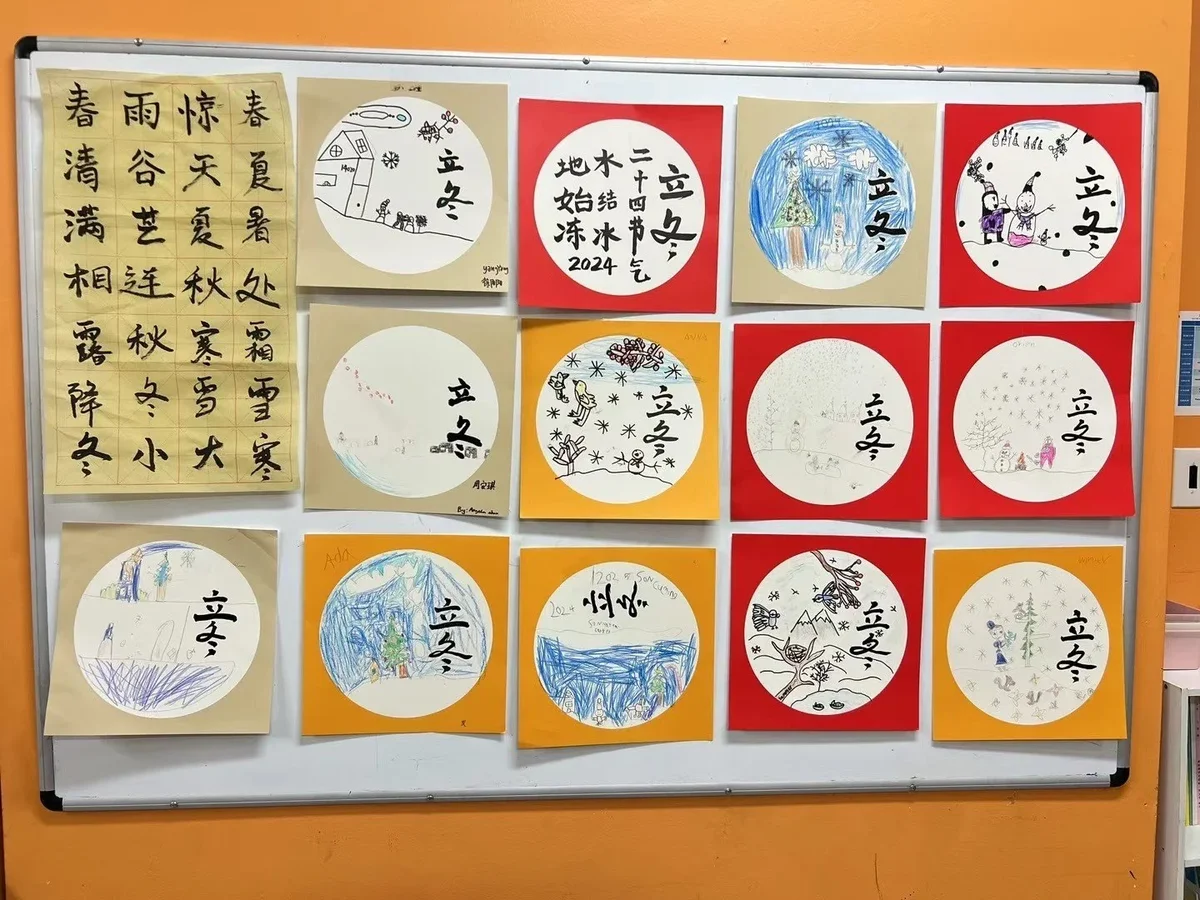 春雨惊春
清谷天夏
满芒夏暑
相连秋处
露秋寒霜
降冬雪雪
冬小大寒
立冬
立冬
二十四节气
水结冰
地始冻
2024
立冬
立冬
立冬
周安琪
By: Angela
立冬
立冬
立冬
立冬
Ada
立冬
2024
立冬
立冬